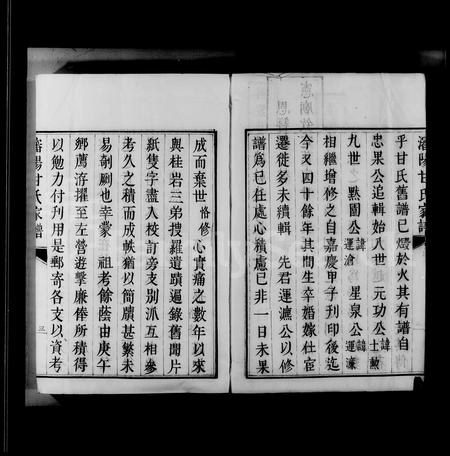 瀋陽甘氏家譜
乎甘氏舊譜已燬於火其有譜自
忠果公追輯始八世 元功公諱士
九世 黙園公諱運滄 星泉公諱運濂
相繼增修之自嘉慶甲子刊印後迄
今又四十餘年其間生卒婚嫁仕宦
遷徙多未續輯 先君運漉公以修
譜爲己任處心積慮已非一日未果
成而棄世恪修心實痛之數年以來
與桂岩三弟搜羅遺蹟遍錄舊聞片
紙隻字盡入校訂旁支別派互相參
考久之積而成帙猶以簡牘甚繁未
易剞劂也幸蒙 祖考餘蔭由庚午
鄉薦洊擢至左營遊擊廉俸所積得
以勉力付刋用是郵寄各支以資考
瀋陽甘氏家譜
三